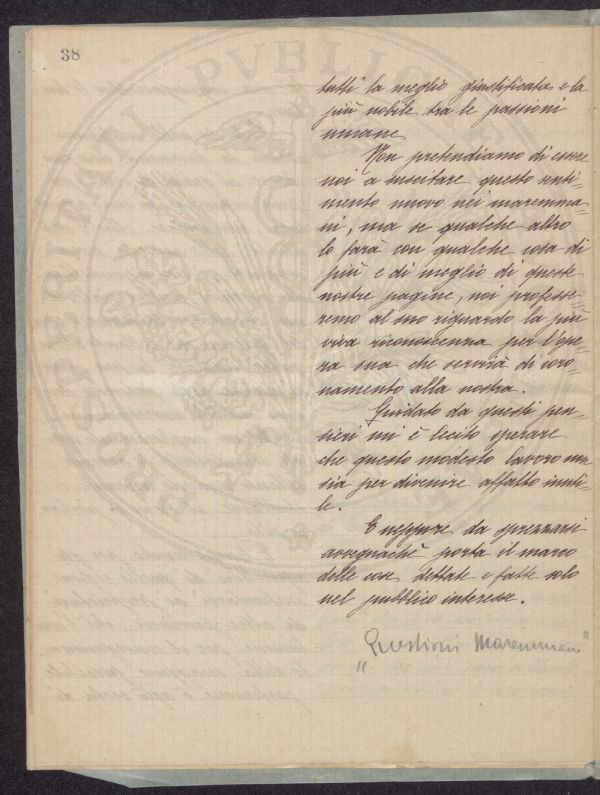 38
tutti la meglio giustificata e la
più nobile tra le passioni
umane.
Non pretendiamo di essere
noi a suscitare questo senti=
mento nuovo nei maremma=
ni, ma se qualche altro
lo farà con qualche cosa di
più e di meglio di queste
nostre pagine, noi professe=
remo al suo riguardo la più
viva riconoscenza per l'ope=
ra sua che servirà di coro=
namento alla nostra.
Guidato da questi pen=
sieri mi è lecito sperare
che questo modesto lavoro non
sia per divenire affatto inuti=
le.
E neppure da sprezzarsi
avvegnachè porta il marco
delle cose dettate e fatte solo
nel pubblico interesse.
"Questioni Maremmane"
PVBLICE